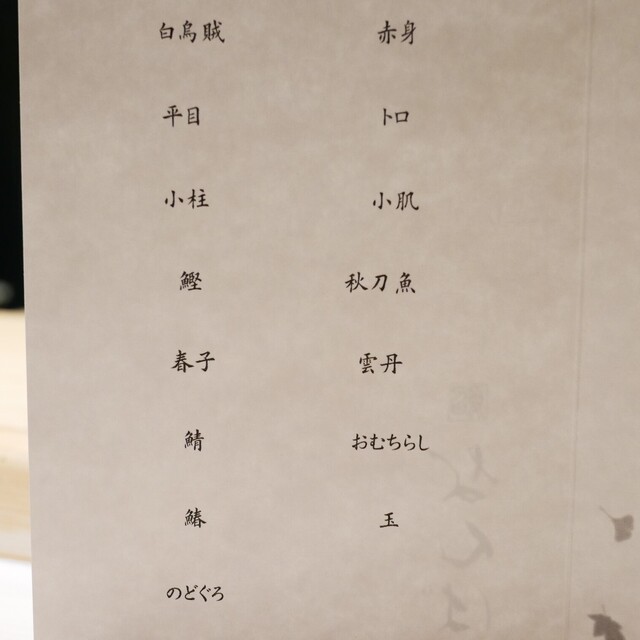 白烏賊
平目
小柱
鰹
春子
鯖
鰆
のどぐろ
赤身
トロ
小肌
秋刀魚
雲丹
おむちらし
玉